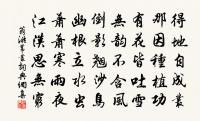 得地自成叢
那因種植功
有花皆吐雪
無韻不含風
倒影翹沙鳥
幽根立水蟲
蕭蕭寒雨夜
江漢思無窮
翁洮葦叢詞典網集